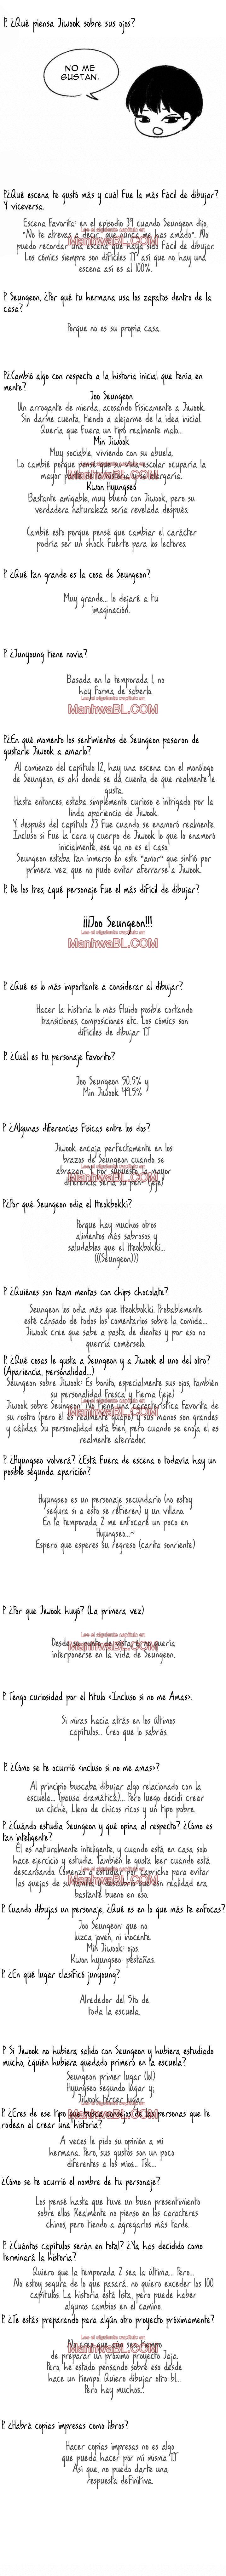 P. ¿Qué piensa Jiwook sobre sus ojos?
NO ME
GUSTAN.
P.¿Qué escena te gustó más y cuál fue la más fácil de dibujar?
Y viceversa.
Escena favorita: en el episodio 39 cuando Seungeon dijo,
"No te atrevas a decir que nunca me has amado". No
Lee el siguiente capítulo en
ManhwaBL.COM
puedo recordar una escena que haya sido fácil de dibujar.
Los cómics siempre son difíciles TT así que no hay una
escena así es al 100%.
P. Seungeon, ¿Por qué tu hermana usa los zapatos dentro de la
casa?
Porque no es su propia casa.
P.¿Cambió algo con respecto a la historia inicial que tenía en
mente?
Joo Seungeon
Un arrogante de mierda, acosando físicamente a Jiwook.
Sin darme cuenta, tiendo a alejarme de la idea inicial.
Quería que fuera un tipo realmente malo...
Min Jiwook
Muy sociable, viviendo con su abuela.
Lo cambié porque pensé que su vida escolar ocuparía la
mayor parte de la historia y se alargaría.
ManhwaBL.COM
Kwon Hyungseo
Bastante amigable, muy buenos con Jiwook, pero su
verdadera naturaleza sería revelada después.
Cambié esto porque pensé que cambiar el carácter
podría ser un shock fuerte para los lectores.
P. ¿Qué tan grande es la cosa de Seungeon?
Muy grande... lo dejaré a tu
imaginación.
P. ¿Junyoung tiene novia?
Basada en la temporada 1, no
hay forma de saberlo.
Lee el siguiente capítulo en
ManhwaBL.COM
P.¿En qué momento los sentimientos de Seungeon pasaron de
gustarle Jiwook a amarlo?
Al comienzo del capítulo 12, hay una escena con el monólogo
de Seungeon, es ahí donde se da cuenta de que realmente le
gusta.
Hasta entonces, estaba simplemente curioso e intrigado por la
linda apariencia de Jiwook.
Y después del capítulo 23 fue cuando se enamoró realmente.
Incluso si fue la cara y cuerpo de Jiwook lo que lo enamoró
inicialmente, ese ya no es el caso.
Seungeon estaba tan inmerso en este "amor" que sintió por
primera vez, que no pudo evitar aferrarse a Jiwook.
P. De los tres, ¿qué personaje fue el más difícil de dibujar?
¡¡¡Joo Seungeon!!!
Lee el siguiente capítulo en
ManhwaBL.COM
P. ¿Qué es lo más importante a considerar al dibujar?
Hacer la historia lo más fluido posible cortando
transiciones, composiciones etc. Los cómics son
difíciles de dibujar TT
P. ¿Cuál es tu personaje favorito?
Joo Seungeon 50,5% y
Min Jiwook 49,5%
P. ¿Algunas diferencias físicas entre los dos?
Jiwook encaja perfectamente en los
brazos de Seungeon cuando se
abrazan. Y por supuesto la mayor
Lee el siguiente capítulo en
ManhwaBL.COM
diferencia sería su pen* (jeje)
P.¿Por qué Seungeon odia el tteokbokki?
Porque hay muchos otros
alimentos más sabrosos y
saludables que el tteokbokki...
(((Seungeon)))
P. ¿Quiénes son team mentas con chips chocolate?
Seungeon los odia más que tteokbokki. Probablemente
esté cansado de todos los comentarios sobre la comida...
Jiwook cree que sabe a pasta de dientes y por eso no
querría comérselo.
P. ¿Qué cosas le gusta a Seungeon y a Jiwook el uno del otro?
(Apariencia, personalidad...)
Seungeon sobre Jiwook: Es bonito, especialmente sus ojos, también
su personalidad fresca y tierna (jeje)
Jiwook sobre Seungeon: No tiene una característica favorita de
ManhwaBL.COM
su rostro (pero él es realmente guapo) y sus manos son grandes
y cálidas. Su personalidad está bien, pero cuando se enoja él es
realmente aterrador.
P. ¿Hyungseo volverá? ¿Está fuera de escena o todavía hay un
posible segunda aparición?
Hyungseo es un personaje secundario (no estoy
segura si a esto se refieren) y un villano.
En la temporada 2 me enfocaré un poco en
Hyungseo...~
Espero que esperes su regreso (carita sonriente)
P. ¿Por que Jiwook huyó? (La primera vez)
Lee el siguiente capítulo en
Desde su punto de vista, él no quería
ManhwaBL.COM
interponerse en la vida de Seungeon.
P. Tengo curiosidad por el título <Incluso si no me Amas>.
Si miras hacia atrás en los últimos
capítulos... Creo que lo sabrás.
P. ¿Cómo se te ocurrió <incluso si no me amas>?
Al principio buscaba dibujar algo relacionado con la
escuela... (pausa dramática)... Pero luego decidí crear
un cliché, lleno de chicos ricos y un tipo pobre.
P. ¿Cuándo estudia Seungeon y qué opina al respecto? ¿Cómo es
tan inteligente?
Él es naturalmente inteligente, y cuando está en casa solo
hace ejercicio y estudia. También le gusta leer cuando está
descansando. Comenzó a estudiar por capricho para evitar
las quejas de su familia y descubrió que en realidad era
ManhwaBL.COM
bastante bueno en eso.
P. Cuando dibujas un personaje, ¿Qué es en lo que más te enfocas?
Joo Seungeon: que no
luzca joven, ni inocente.
Min Jiwook: ojos.
Kwon hyungseo: pestañas.
P. ¿En qué lugar clasificó junyoung?
Alrededor del 5to de
toda la escuela.
P. Si Jiwook no hubiera salido con Seungeon y hubiera estudiado
mucho, ¿quién hubiera quedado primero en la escuela?
Seungeon primer lugar (lol)
Hyungseo segundo lugar y,
Jiwook tercer lugar.
P. ¿Eres de ese tipo que busca consejos de las personas que te
ManhwaBL.COM
rodean al crear una historia?
A veces le pido su opinión a mi
hermana. Pero, sus gustos son un poco
diferentes a los míos... Tsk...
¿Cómo se te ocurrió el nombre de tu personaje?
Los pensé hasta que tuve un buen presentimiento
sobre ellos. Realmente no pienso en los caracteres
chinos, pero tiendo a agregarlos más tarde.
P. ¿Cuántos capítulos serán en total? ¿Ya has decidido como
terminará la historia?
Quiero que la temporada 2 sea la última... Pero...
No estoy segura de lo que pasará, no quiero exceder los 100
capítulos. La historia está lista, pero puede haber
algunos cambios en el camino.
P. ¿Te estás preparando para algún otro proyecto próximamente?
Lee el siguiente capítulo en
No creo que aún sea tiempo
ManhwaBL.COM
de preparar un próximo proyecto Jaja.
Pero, he estado pensando sobre eso desde
hace un tiempo. Quiero dibujar otro bl...
Pero hay muchos...
P. ¿Habrá copias impresas como libros?
Hacer copias impresas no es algo
que pueda hacer por mi misma TT
Así que, no puedo darte una
respuesta definitiva.